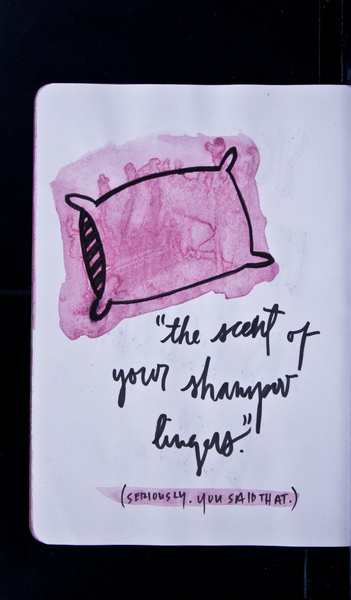 "the scent of
your shampoo
lingers."
(SERIOUSLY. YOU SAID THAT.)